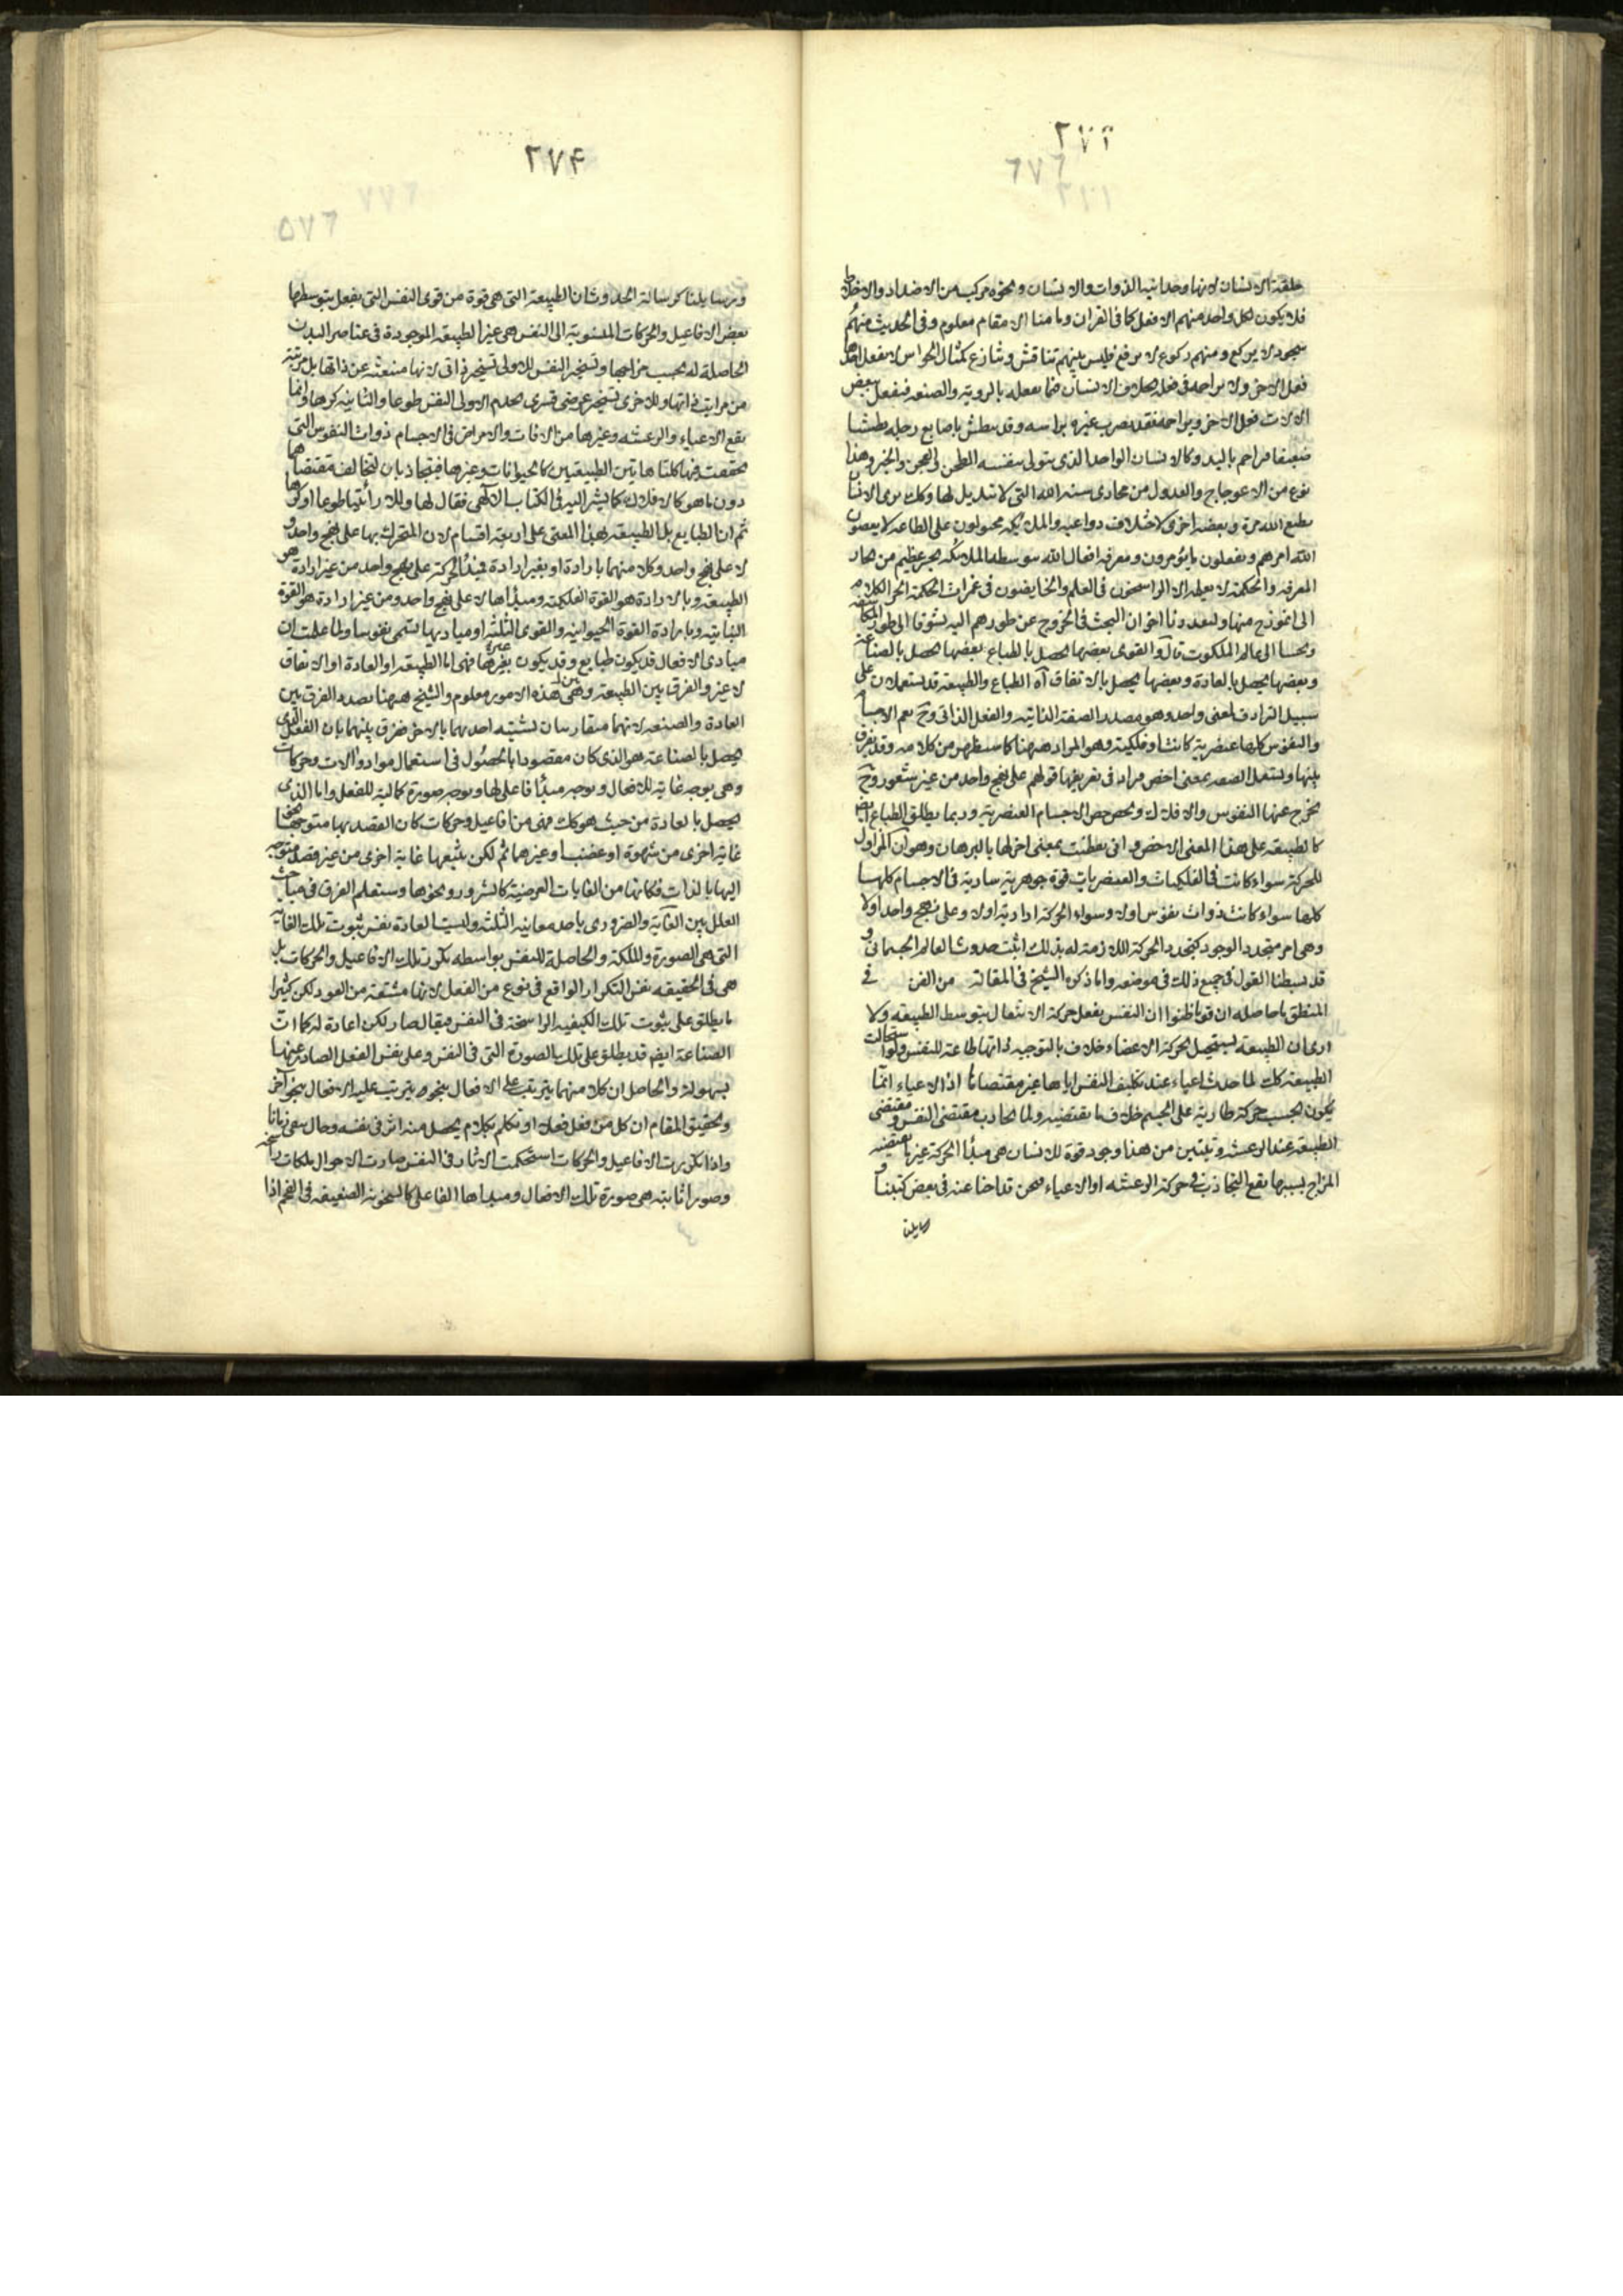 خلقة الانسان لانها وحدانية الذوات والانسان ونحوه مركب من الاضداد والاخلاط
فلا يكون لكل واحد منهم الا فعل كما في القران وما منا الا مقام معلوم وفي الحديث منهم
سجود لا يركع ومنهم ركوع لا يرفع فليس بينهم تناقش وتنازع كمثال الحواس لا يفعل احدها
فعل الاخر ولا يزاحمه في فعله بخلاف الانسان فيما يفعله بالروية والصنعة فيفعل ببعض
الالات فعل الاخر ويزاحمه فقد يضرب غيره براسه وقد يبطش باصابع رجله بطشا
ضعيفا مزاحم باليد وكالانسان الواحد الذي يتولى بنفسه الطحن والعجن والخبز وهذا
نوع من الاعوجاج والعدول من مجاري سنة الله التي لا تبديل لها وكك نرى الانسان
يطيع الله مرة ويعصيه اخرى لاختلاف دواعيه والملائكة مجبولون على الطاعة لا يعصون
الله امرهم ويفعلون ما يؤمرون ومعرفة افعال الله بتوسط الملائكة بحر عظيم من بحار
المعرفة والحكمة لا يعلمه الا الراسخون في العلم والخايضون في غمرات الحكمة انجر الكلام
الى انموذج منها وليعذرنا اخوان البحث في الخروج عن طورهم اليه تشوقا الى طور المكاشفة
وتحننا الى عالم الملكوت قال والقوى بعضها يحصل بالطباع بعضها يحصل بالصناعة
وبعضها يحصل بالعادة وبعضها يحصل بالاتفاق آه الطباع والطبيعة قد يستعملان على
سبيل الترادف لمعنى واحد وهو مصدر الصفة الذاتية والفعل الذاتي وح يعم الاجسام
والنفوس كلها عنصرية كانت او فلكية وهو المراد ههنا كما سيظهر من كلامه وقد يفرق
بينها ويستعمل الطبيعة بمعنى اخص مراد في تعريفها قولهم على نهج واحد من غير شعور وح
يخرج عنها النفوس والافلاك ويخصص الاجسام العنصرية وربما يطلق الطباع ايضا
كالطبيعة على هذا المعنى الاخص واني تفطنت بمعنى اخر لها بالبرهان وهو ان المزاول
للحركة سواء كانت في الفلكيات والعنصريات قوة جوهرية سارية في الاجسام كلها
كلها سواء كانت ذوات نفوس اولا وسواء الحركة ارادية اولا وعلى نهج واحد اولا
وهي امر متجدد الوجود كتجدد الحركة اللازمة له بذلك اثبت حدوث العالم الجسماني و
قد بسطنا القول في جميع ذلك في موضعه واما ذكره الشيخ في المقالة من الفن في
المنطق ما حاصله ان قوما ظنوا ان النفس يفعل حركة الانتقال بتوسط الطبيعة ولا
ارى ان الطبيعة يستحيل لحركة الاعضاء خلاف ما التوجبه ذاتها طاعة للنفس ولو استحالت
الطبيعة كك لما حدث اعياء عند تكليف النفس اياها غير مقتضاها اذ الاعياء انما
يكون بحسب حركة طارية على الجسم خلاف ما تقتضيه ولما تجاذب مقتضى النفس ومقتضى
الطبيعة عند الرعشة ويتبين من هذا وجود قوة للانسان هي مبدأ الحركة غير ما يقتضيه
المزاج بسببها يقع التجاذب في حركة الرعشة او الاعياء ونحن قد اجبنا عنه في بعض كتبنا و
رسايلنا
٢٧۴
٥٧٦
ورسايلنا كرسالة الحدوث ان الطبيعة التي هي قوة من قوى النفس التي يفعل بتوسطها
بعض الافاعيل والحركات المنسوبة الى النفس هي غير الطبيعة الموجودة في عناصر البدن
الحاصلة له بحسب مزاجها وتسخير النفس للاولى تسخير ذاتي لانها منبعثة عن ذاتها بل مرتبة
من مراتب ذاتها وللاخرى تسخير عرضي قسري يخدم الاولى النفس طوعا والثانية كرها وانما
يقع الاعياء والرعشة وغيرها من الافات والامراض في الاجسام ذوات النفوس التي
تحققت فيها كلتا هاتين الطبيعتين كالحيوانات وغيرها فيتجاذبان لتخالف مقتضاهما
دون ما هو كالافلاك كما يشير اليه في الكتاب الالهي فقال لها وللارض ائتيا طوعا او كرها
ثم ان الطبايع بل الطبيعة بهذا المعنى على اربعة اقسام لان المتحرك بها على نهج واحد و
لا على نهج واحد وكلا منهما بارادة او بغير ارادة فمبدأ الحركة على نهج واحد من غير ارادة هو
الطبيعة وبالارادة هو القوة الفلكية ومبدأها لا على نهج واحد ومن غير ارادة هو القوة
النباتية وبارادة القوة الحيوانية والقوى الثلثة او مباديها تسمى نفوسا ولما علمت ان
مبادي الافعال قد يكون طبايع وقد يكون غيرها فهي اما الطبيعة او العادة او الاتفاق
لا غير والفرق بين الطبيعة وبين هذه الامور معلوم والشيخ ههنا بصدد الفرق بين
العادة والصنعة لانهما متقاربان يشتبه احديهما بالاخر ففرق بينهما بان الفعل الذي
يحصل بالصناعة هو الذي كان مقصودا بالحصول في استعمال مواد والات وحركات
وهي بوجه غاية للافعال وبوجه مبدأ فاعلي لها وبوجه صورة كمالية للفعل واما الذي
يحصل بالعادة من حيث هو كك فهي من افاعيل وحركات كان القصد بها متوجها نحو
غاية اخرى من شهوة او غضب او غيرهما ثم لكن يتبعها غاية اخرى من غير قصد متوجه
اليها بالذات فكانها من الغايات العرضية كالشرور ونحوها وستعلم الفرق في مباحث
العلل بين الغاية والضروري باحد معانيه الثلثة وليست العادة نفس ثبوت تلك الغاية
التي هي الصورة والملكة والحاصلة للنفس بواسطة تكرر تلك الافاعيل والحركات بل
هي في الحقيقة نفس التكرار الواقع في نوع من الفعل لانها مشتقة من العود لكن كثيرا
ما يطلق على ثبوت تلك الكيفية الراسخة في النفس فيقال صار لكن اعادة له كما ان
الصناعة ايضا قد يطلق على تلك الصورة التي في النفس وعلى نفس الفعل الصادر عنها
بسهولة والحاصل ان كلا منهما يترتب على الافعال بنحو ويترتب عليه الافعال بنحو آخر
وتحقيق المقام ان كل من فعل فعلا او تكلم بكلام يحصل منه اثر في نفسه وحال يبقى زمانا
واذا تكررت الافاعيل والحركات استحكمت الاثار في النفس صارت الاحوال ملكات راسخة
وصورا ثابتة هي صورة تلك الافعال ومبدأها الفاعلي كالسخونة الضعيفة في الفحم اذا